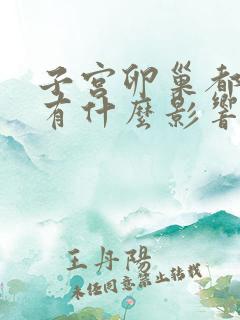 子宮卵巢都
有什麼影響
王丹陽
未經同意禁止轉載